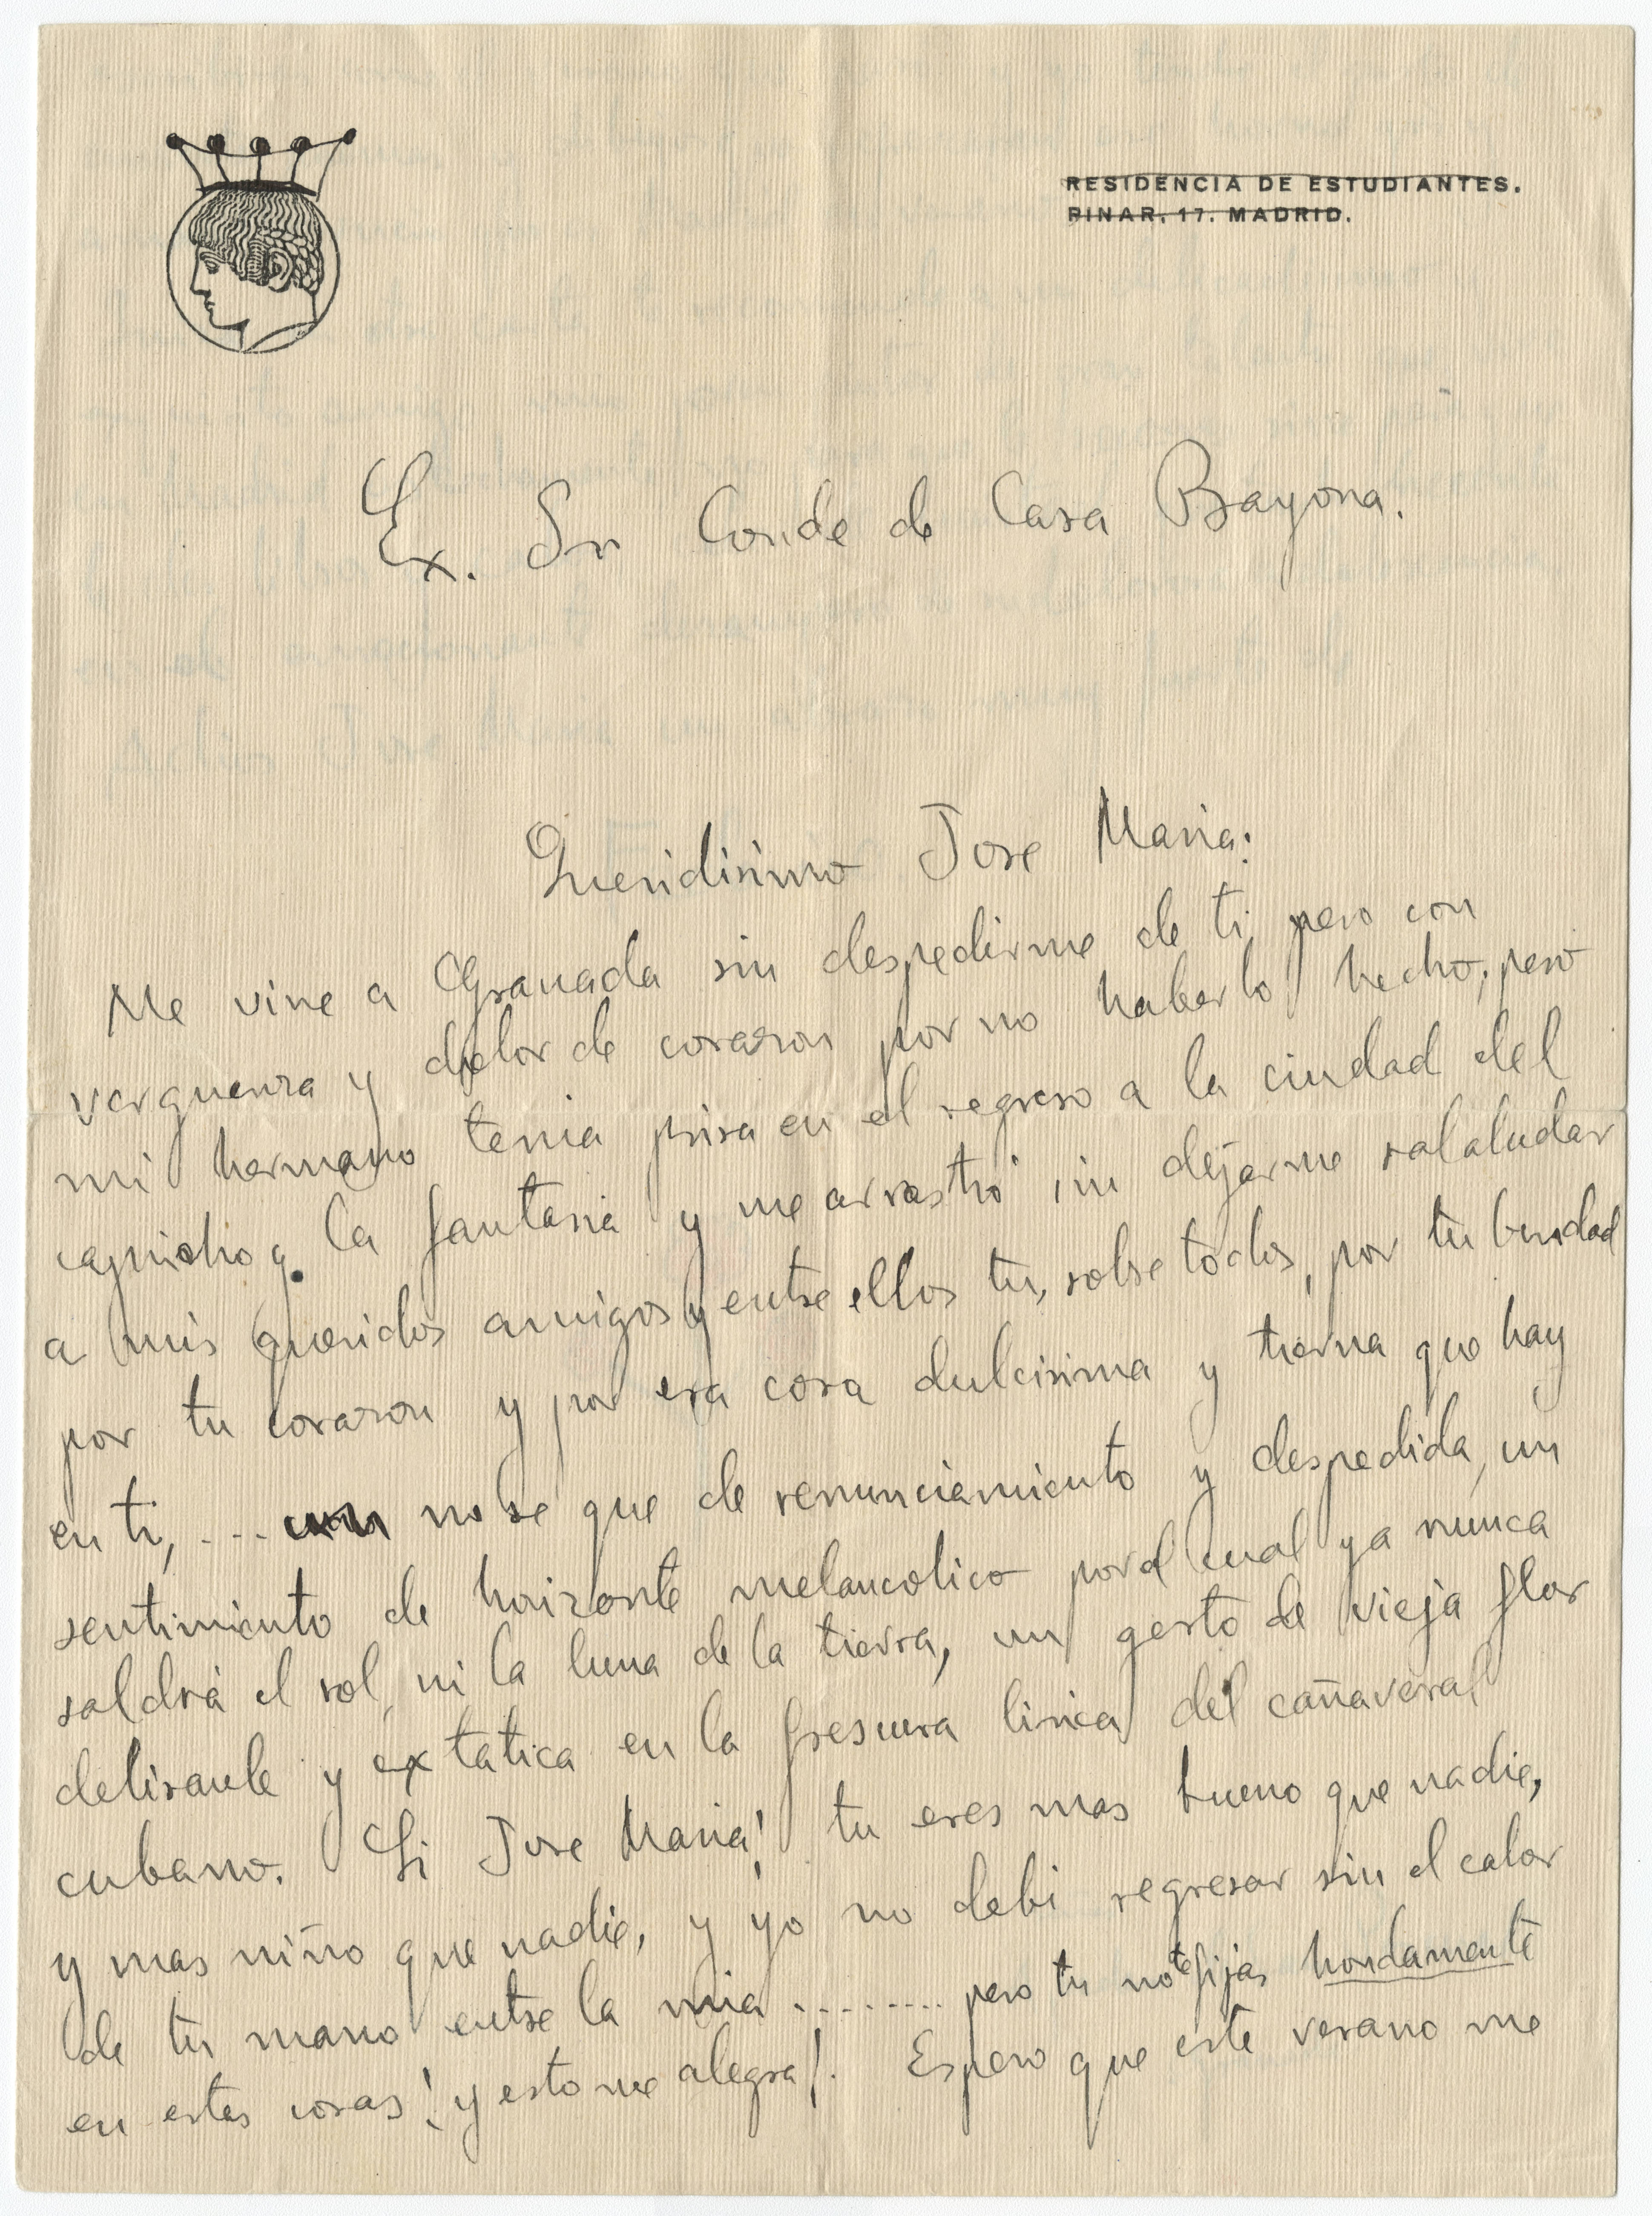 RESIDENCIA DE ESTUDIANTES.
PINAR, 17. MADRID.
Ex. Sr Conde de Casa Bayona.
Queridisimo Jose Maria:
Me vine a Granada sin despedirme de ti pero con
verguenza y dolor de corazon por no haberlo hecho; pero
mi hermano tenia prisa en el regreso a la ciudad del
capricho y la fantasia y me arrastró sin dejarme salaludar
a mis queridos amigos y entre ellos tu, sobre todos, por tu bondad
por tu corazon y por esa cosa dulcisima y tierna que hay
en ti, ... un no se que de renunciamiento y despedida, un
sentimiento de horizonte melancolico por el cual ya nunca
saldrá el sol, ni la luna de la tierra, un gesto de vieja flor
delirante y extatica en la frescura lirica del cañaveral
cubano. Si Jose Maria! tu eres mas bueno que nadie,
y mas niño que nadie, y yo no debi regresar sin el calor
de tu mano entre la mia ......... pero tu no te fijas hondamente
en estas cosas ¡y esto me alegra!. Espero que este verano me